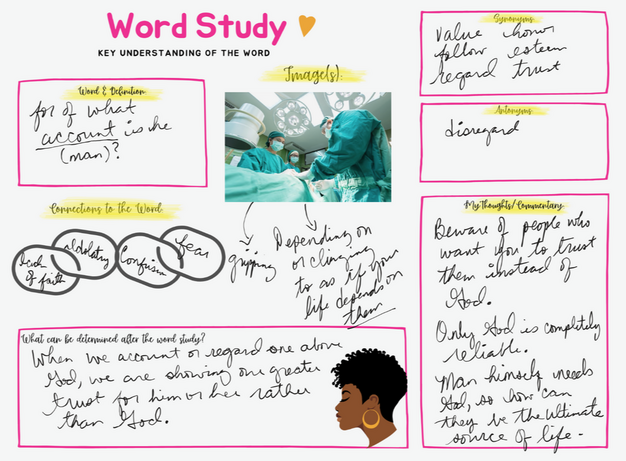 Word Study
KEY UNDERSTANDING OF THE WORD
Word & Definition:
for of what
account is he
(man)?
Image(s):
Synonyms:
value honor
follow esteem
regard trust
Antonyms:
disregard
Connections to the Word:
lack
of faith
idolatry
Confusion
fear
gripping
Depending on
or clinging
to as if your
life depends on
them
My Thoughts/Commentary:
Beware of people who
want you to trust
them instead of
God.
Only God is completely
reliable.
Man himself needs
God, so how can
they be the ultimate
source of life.
What can be determined after the word study?
When we account or regard one above
God, we are showing our greater
trust for him or her rather
than God.